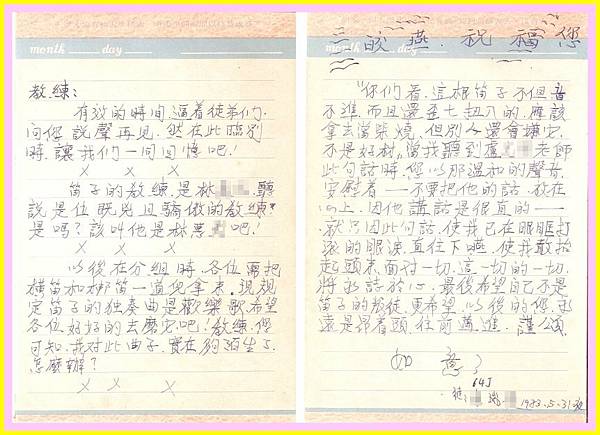 month day
教練:
有效的時間逼着徒弟们.
向您說聲再見,然在此臨別
時,讓我们一同回憶吧!
× × ×
笛子的教練.是林 聽
說是位既兇且驕傲的教練?
是嗎?該叫他是林惡 吧!
× × ×
以後在分組時.各位需把
橫笛和梆笛一道地拿來.現規
定笛子的独奏曲是歡樂歌.希望
各位好好的去磨它吧!教練.您
可知.我对此曲子.實在夠陌生了.
怎麼辦?
× × ×
month day
三皎燕.祝福您
"你们看.這根笛子不但音
不準.而且還歪七扭八的.應該
拿去當柴燒.但別人還會嫌它.
不是好材"當我聽到盧 老師
此句話時.您以那温和的聲音.
安慰着——不要把他的話.放在
心上.因他講話是很直的——
就只因此句話.使我已在眼眶打
滾的眼淚.直往下嚥.使我敢抬
起頭來面对一切.這一切的一切.
將永誌於心.最後希望自己不是
笛子的叛徒.更希望.以後的您.永
遠是昂着頭.往前邁進.謹頌.
如意
64J
徒: 1983.5.31夜